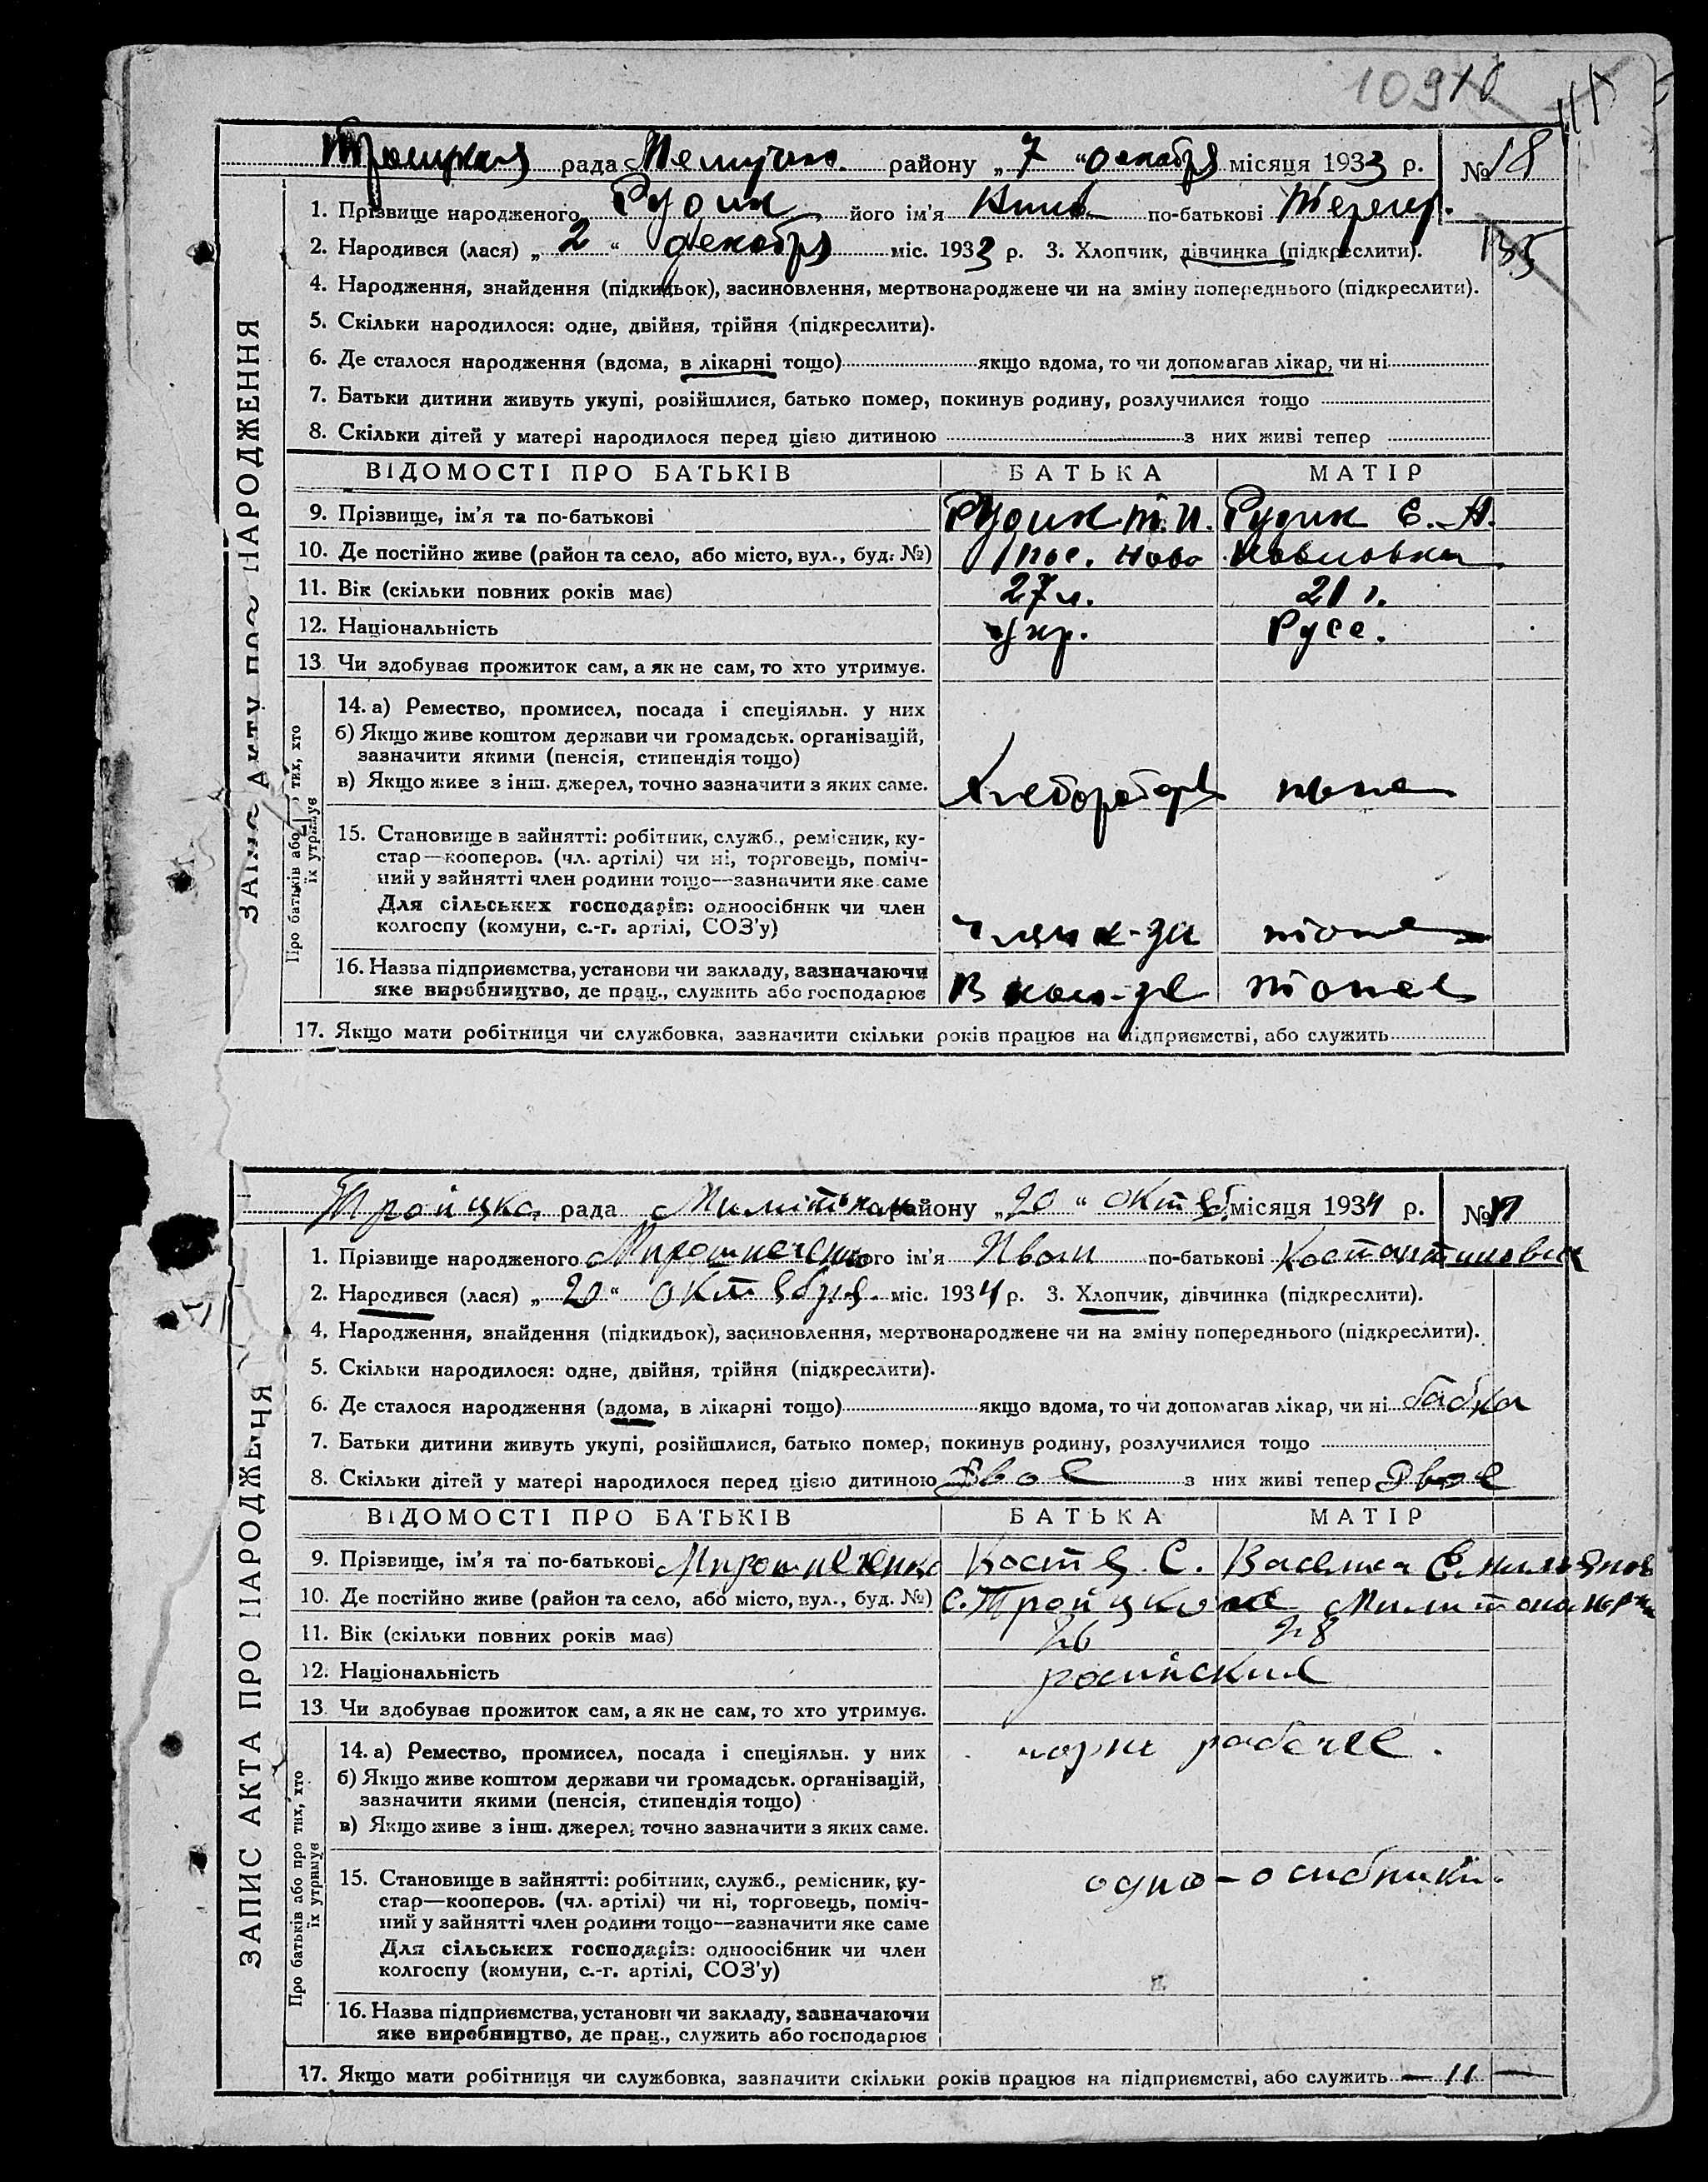 109 10
Троицкая рада район у „7“ декабря місяця 1933 р. № 18
1. Прізвище народженого Рудик його ім'я по-батькові
135
2. Народився (лася) „2“ декабря міс. 1933 р. 3. Хлопчик, дівчинка (підкреслити).
4. Народження, знайдення (підкидьок), засиновлення, мертвонароджене чи на зміну попереднього (підкреслити).
5. Скільки народилося: одне, двійня, трійня (підкреслити).
6. Де сталося народження (вдома, в лікарні тощо) якщо вдома, то чи допомагав лікар, чи ні
7. Батьки дитини живуть укупі, розійшлися, батько помер, покинув родину, розлучилися тощо
8. Скільки дітей у матері народилося перед цією дитиною з них живі тепер
ВІДОМОСТІ ПРО БАТЬКІВ БАТЬКА МАТІР
9. Прізвище, ім'я та по-батькові Рудик Т. И. Рудик Е. А.
10. Де постійно живе (район та село, або місто, вул., буд. №) пос. Ново
11. Вік (скільки повних років має) 27 л. 21 г.
12. Національність укр. Русс.
13 Чи здобуває прожиток сам, а як не сам, то хто утримує.
14. а) Ремество, промисел, посада і спеціяльн. у них
б) Якщо живе коштом держави чи громадськ. організацій,
зазначити якими (пенсія, стипендія тощо)
в) Якщо живе з інш. джерел, точно зазначити з яких саме. Хлебороб
15. Становище в зайнятті: робітник, служб., ремісник, ку-
стар—кооперов. (чл. артілі) чи ні, торговець, поміч-
ний у зайнятті член родини тощо—зазначити яке саме
Для сільських господарів: одноосібник чи член
колгоспу (комуни, с.-г. артілі, СОЗ'у) Член к-за тоже
16. Назва підприємства, установи чи закладу, зазначаючи
яке виробництво, де прац., служить або господарює В колх-зе тоже
17. Якщо мати робітниця чи службовка, зазначити скільки років працює на підприємстві, або служить
Про батьків або тих, хто
їх утримує
Тройцка рада району „20“ октяб. місяця 1934 р. № 17
1. Прізвище народженого Мирошниченко його ім'я Иван по-батькові Костантинович
2. Народився (лася) „20“ октября міс. 1934 р. 3. Хлопчик, дівчинка (підкреслити).
4. Народження, знайдення (підкидьок), засиновлення, мертвонароджене чи на зміну попереднього (підкреслити).
5. Скільки народилося: одне, двійня, трійня (підкреслити).
6. Де сталося народження (вдома, в лікарні тощо) якщо вдома, то чи допомагав лікар, чи ні бабка
7. Батьки дитини живуть укупі, розійшлися, батько помер, покинув родину, розлучилися тощо
8. Скільки дітей у матері народилося перед цією дитиною Двое з них живі тепер Двое
ВІДОМОСТІ ПРО БАТЬКІВ БАТЬКА МАТІР
9. Прізвище, ім'я та по-батькові Мирошниченко Костя. С.
10. Де постійно живе (район та село, або місто, вул., буд. №) С. Тройцкое
11. Вік (скільки повних років має) 26 28
12. Національність
13 Чи здобуває прожиток сам, а як не сам, то хто утримує.
14. а) Ремество, промисел, посада і спеціяльн. у них чорни рабочее.
б) Якщо живе коштом держави чи громадськ. організацій,
зазначити якими (пенсія, стипендія тощо)
в) Якщо живе з інш. джерел, точно зазначити з яких саме.
15. Становище в зайнятті: робітник, служб., ремісник, ку-
стар—кооперов. (чл. артілі) чи ні, торговець, поміч-
ний у зайнятті член родини тощо—зазначити яке саме одно-осибники.
Для сільських господарів: одноосібник чи член
колгоспу (комуни, с.-г. артілі, СОЗ'у)
16. Назва підприємства, установи чи закладу, зазначаючи
яке виробництво, де прац., служить або господарює
17. Якщо мати робітниця чи службовка, зазначити скільки років працює на підприємстві, або служить — 11 —
ЗАПИС АКТА ПРО НАРОДЖЕННЯ
Про батьків або про тих, хто
їх утримує